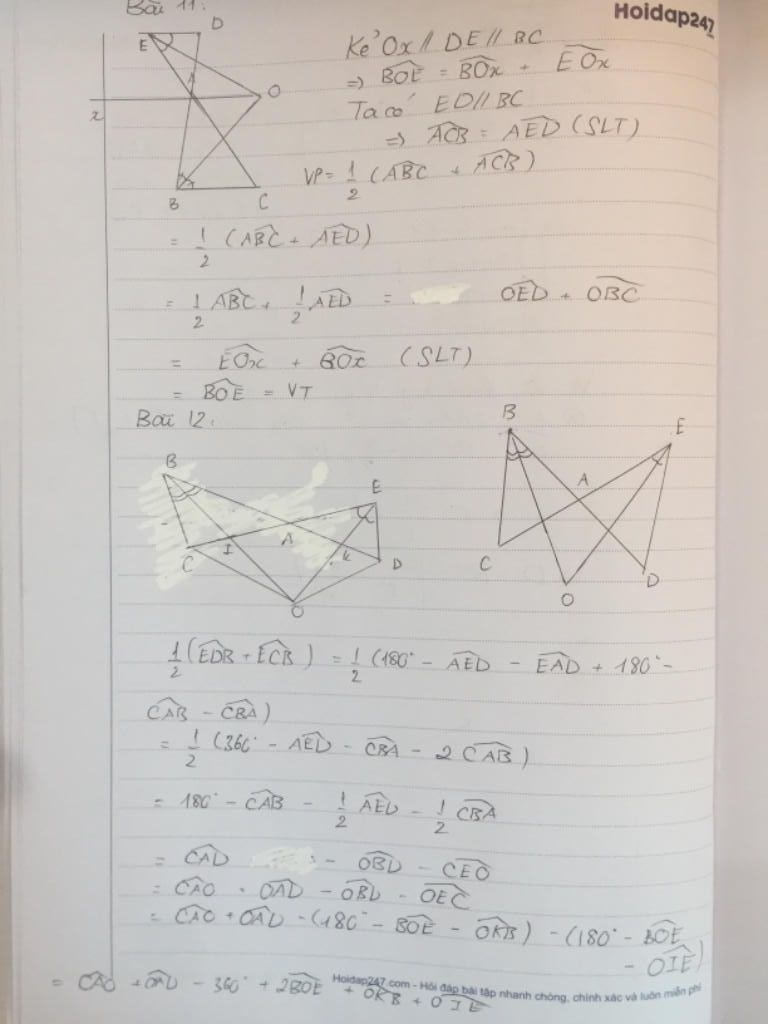 Bài 11:
Hoidap247
.com
E
D
A
O
x
B
C
Kẻ Ox // DE // BC
⇒ BOE = BOx + EOx
Ta có ED // BC
⇒ ACB = AED (SLT)
VP = 1/2 (ABC + ACB)
= 1/2 (ABC + AED)
= 1/2 ABC + 1/2 AED = OED + OBC
= EOx + BOx (SLT)
= BOE = VT
Bài 12:
B
E
C
I
A
K
D
O
B
E
A
C
D
O
1/2 (EDB + ECB) = 1/2 (180° - AED - EAD + 180° -
CAB - CBA)
= 1/2 (360° - AED - CBA - 2 CAB)
= 180° - CAB - 1/2 AED - 1/2 CBA
= CAD - OBD - CEO
= CAO + OAD - OBD - OEC
= CAO + OAD - (180° - BOE - OKB) - (180° - BOE
- OIE)
= CAO + OAD - 360° + 2BOE + OKB + OIE
Hoidap247.com - Hỏi đáp bài tập nhanh chóng, chính xác và luôn miễn phí